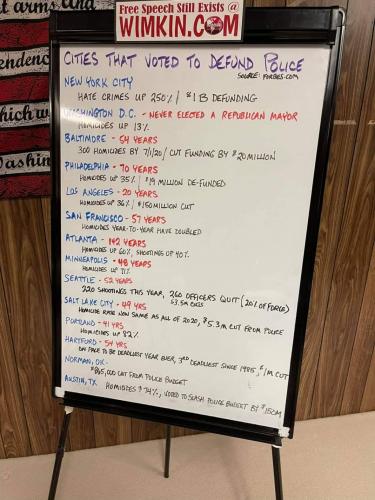 arms and
ndence
which w
Washin
Free Speech Still Exists @
WIMKIN.COM
CITIES THAT VOTED TO DEFUND POLICE
SOURCE: FORBES.COM
NEW YORK CITY
HATE CRIMES UP 250% / $1B DEFUNDING
WASHINGTON D.C. - NEVER ELECTED A REPUBLICAN MAYOR
HOMICIDES UP 13%
BALTIMORE - 54 YEARS
300 HOMICIDES BY 7/1/20 / CUT FUNDING BY $20MILLION
PHILADELPHIA - 70 YEARS
HOMICIDES UP 35% / $19 MILLION DE-FUNDED
LOS ANGELES - 20 YEARS
HOMICIDES UP 36% / $150MILLION CUT
SAN FRANCISCO - 57 YEARS
HOMICIDES YEAR-TO-YEAR HAVE DOUBLED
ATLANTA - 142 YEARS
HOMICIDES UP 60%, SHOOTINGS UP 40%
MINNEAPOLIS - 48 YEARS
HOMICIDES UP 71%
SEATTLE - 52 YEARS
220 SHOOTINGS THIS YEAR, 260 OFFICERS QUIT (20% OF FORCE)
$3.5M CUTS
SALT LAKE CITY - 49 YRS
HOMICIDE RATE NOW SAME AS ALL OF 2020, $5.3M CUT FROM POLICE
PORTLAND - 41 YRS
HOMICIDES UP 82%
HARTFORD - 54 YRS
ON PACE TO BE DEADLIEST YEAR EVER, 3RD DEADLIEST SINCE 1985, $1M CUT
NORMAN, OK -
$865,000 CUT FROM POLICE BUDGET
AUSTIN, TX HOMICIDES 74%, VOTED TO SLASH POLICE BUDGET BY $150M